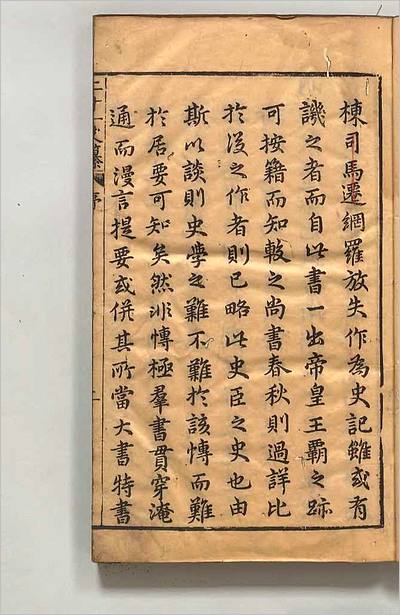 棟司馬遷網羅放失作為史記雖或有
譏之者而自此書一出帝皇王霸之跡
可按籍而知較之尚書春秋則過詳比
於後之作者則已略此史臣之史也由
斯以談則史學之難不難於該博而難
於居要可知矣然非博極羣書貫穿淹
通而漫言提要或併其所當大書特書
二十一史 序